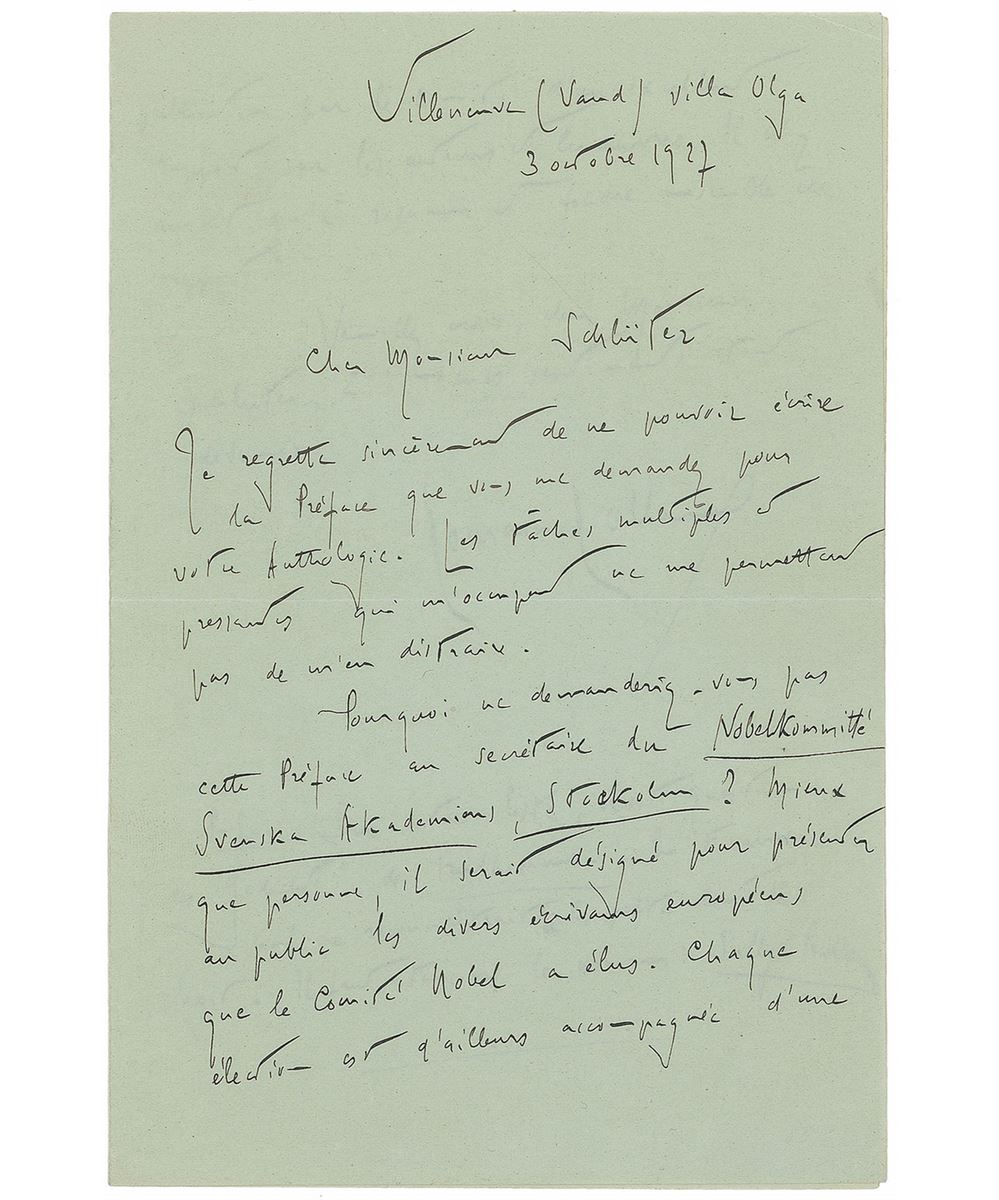 Villeneuve (Vaud) villa Olga
3 octobre 1927
Cher Monsieur Schlüter
Je regrette sincèrement de ne pouvoir écrire
la Préface que vous me demandez pour
votre Anthologie. Les tâches multiples et
pressantes qui m'occupent ne me permettent
pas de m'en distraire.
Pourquoi ne demanderiez-vous pas
cette Préface au secrétaire du Nobelkommitté
Svenska Akademiens, Stockolm ? Mieux
que personne, il serait désigné pour présenter
au public les divers écrivains européens
que le Comité Nobel a élus. Chaque
élection est d'ailleurs accompagnée d'une